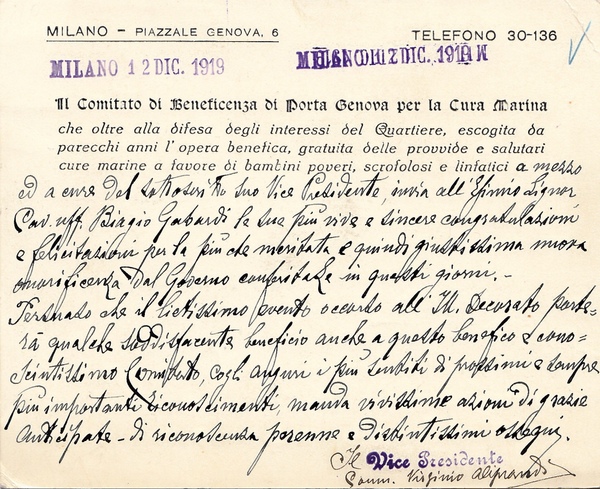 MILANO – PIAZZALE GENOVA, 6 TELEFONO 30-136
MILANO 12 DIC. 1919 MILANO 12 DIC. 1919
Il Comitato di Beneficenza di Porta Genova per la Cura Marina
che oltre alla difesa degli interessi del Quartiere, escogita da
parecchi anni l'opera benefica, gratuita delle provvide e salutari
cure marine a favore di bambini poveri, scrofolosi e linfatici a mezzo
ed a cura del sottoscritto suo Vice Presidente, invia all'Esimio Signor
Cav. uff. Biagio Gabardi le sue più vive e sincere congratulazioni
e felicitazioni per la più che meritata e quindi giustissima nuova
onorificenza dal Governo conferitale in questi giorni. –
Persuaso che il lietissimo evento occorso all'Ill. Decorato porte-
rà qualche soddisfacente beneficio anche a questo benefico e cono-
scintissimo Comitato, cogli auguri i più sentiti di prossimi e sempre
più importanti riconoscimenti, manda vivissime azioni di grazie
anticipate – di riconoscenza perenne e distintissimi ossequi.
Il Vice Presidente
Comm. Virginio Aliprandi